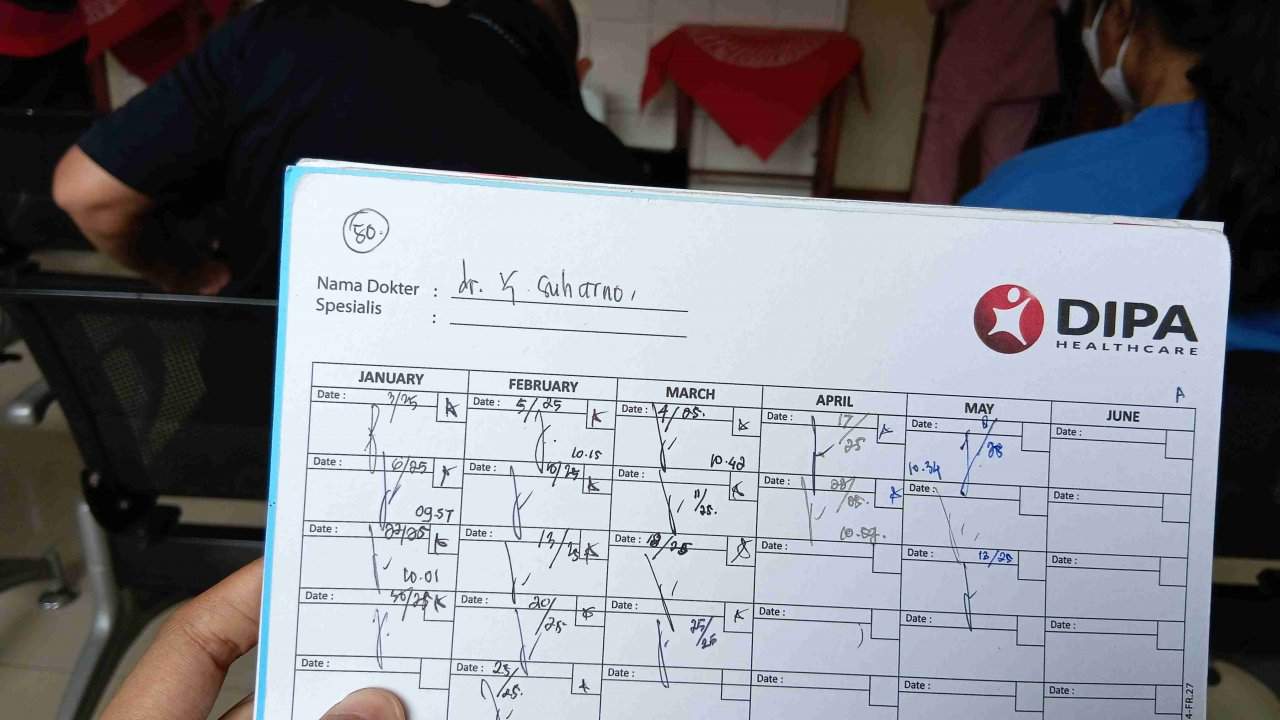 80.
Nama Dokter : dr. Suharno.
Spesialis :
DIPA
HEALTHCARE
A
JANUARY FEBRUARY MARCH APRIL MAY JUNE
Date : 3/25 Date : 5/25 Date : 4/25. Date : 17/25 Date : 8/25 Date :
10.15 10.42 10.34
Date : 6/25 Date : 10/25 Date : 11/25. Date : Date : Date :
09.57 10.07.
Date : 22/25 Date : 13/25 Date : 18/25 Date : Date : 13/25 Date :
10.01
Date : 30/25 Date : 20/25 Date : 25/25 Date : Date : Date :
Date : Date : 25/25. Date : Date : Date : Date :
4-FR.27